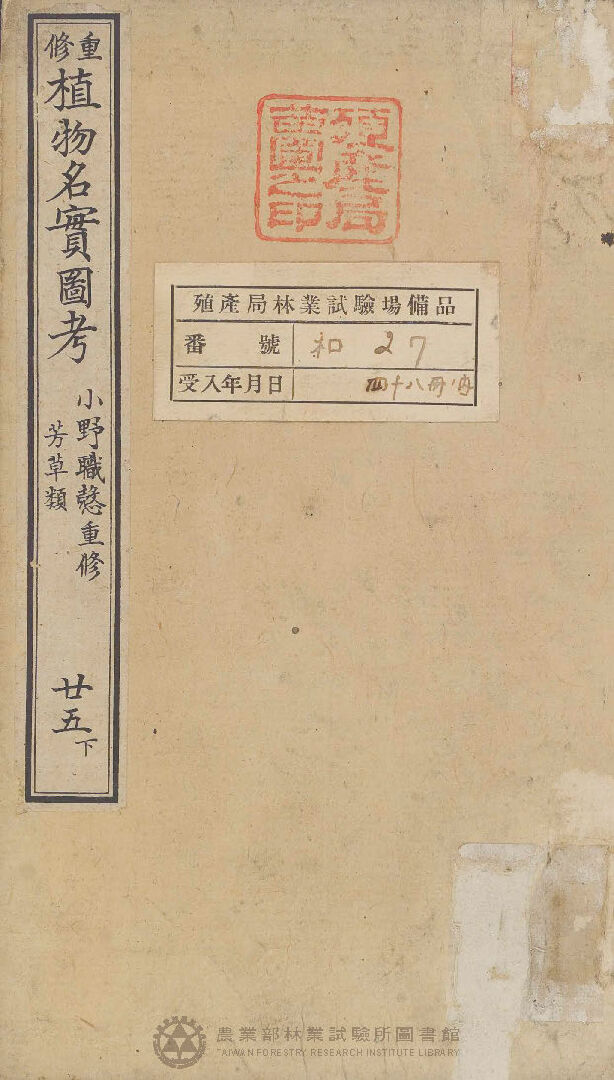 重修
植物名實圖考
小野職愨重修
芳草類
廿五下
殖產局圖書之印
殖產局林業試驗場備品
番號 和 27
受入年月日 四十八冊ノ内
農業部林業試驗所圖書館
TAIWAN FORESTRY RESEARCH INSTITUTE LIBRARY